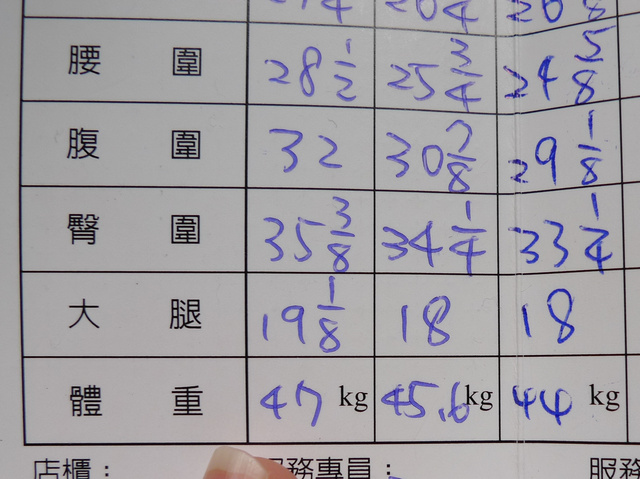 腰圍 28 1/2 25 3/4 24 5/8
腹圍 32 30 7/8 29 1/8
臀圍 35 3/8 34 1/4 33 1/4
大腿 19 1/8 18 18
體重 47 kg 45.6 kg 44 kg
店櫃： 服務專員： 服務